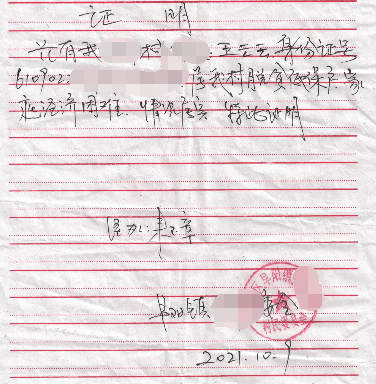 证 明
兹有我 村 王云云身份证号
610902 系我村脱贫低保户，家
庭经济困难，情况属实 特此证明
经办：
镇
村民委员会
2021.10.9